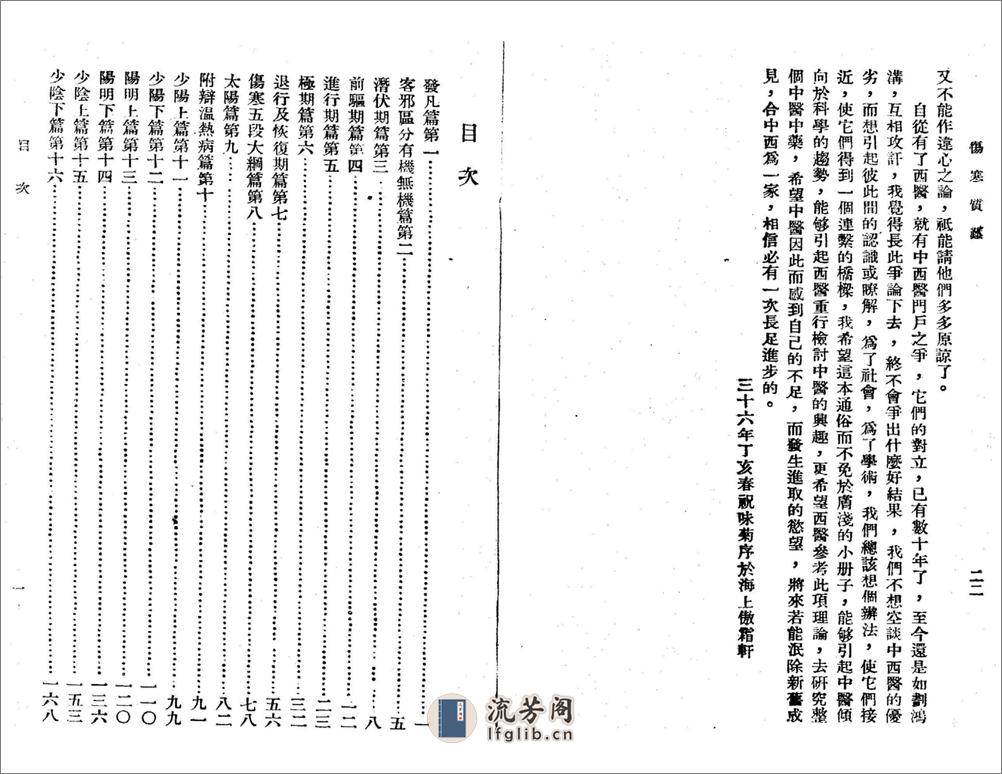 傷寒質難
二二
又不能作違心之論，祇能請他們多多原諒了。
自從有了西醫，就有中西醫門戶之爭，它們的對立，已有數十年了，至今還是如劃鴻
溝，互相攻訐，我覺得長此爭論下去，終不會爭出什麼好結果，我們不想空談中西醫的優
劣，而想引起彼此間的認識或瞭解，爲了社會，爲了學術，我們總該想個辦法，使它們接
近，使它們得到一個連繫的橋樑，我希望這本通俗而不免於膚淺的小册子，能够引起中醫傾
向於科學的趨勢，能够引起西醫重行檢討中醫的興趣，更希望西醫參考此項理論，去研究整
個中醫中藥，希望中醫因此而感到自己的不足，而發生進取的慾望，將來若能泯除新舊成
見，合中西爲一家，相信必有一次長足進步的。
三十六年丁亥春祝味菊序於海上傲霜軒
目次
發凡篇第一……一
客邪區分有機無機篇第二……五
潛伏期篇第三……八
前驅期篇第四……一二
進行期篇第五……二三
極期篇第六……三二
退行及恢復期篇第七……五六
傷寒五段大綱篇第八……七八
太陽篇第九……八二
附辯溫熱病篇第十……九一
少陽上篇第十一……九九
少陽下篇第十二……一一〇
陽明上篇第十三……一二〇
陽明下篇第十四……一三六
少陰上篇第十五……一五三
少陰下篇第十六……一六八
目次
一
流芳阁
lfglib.cn